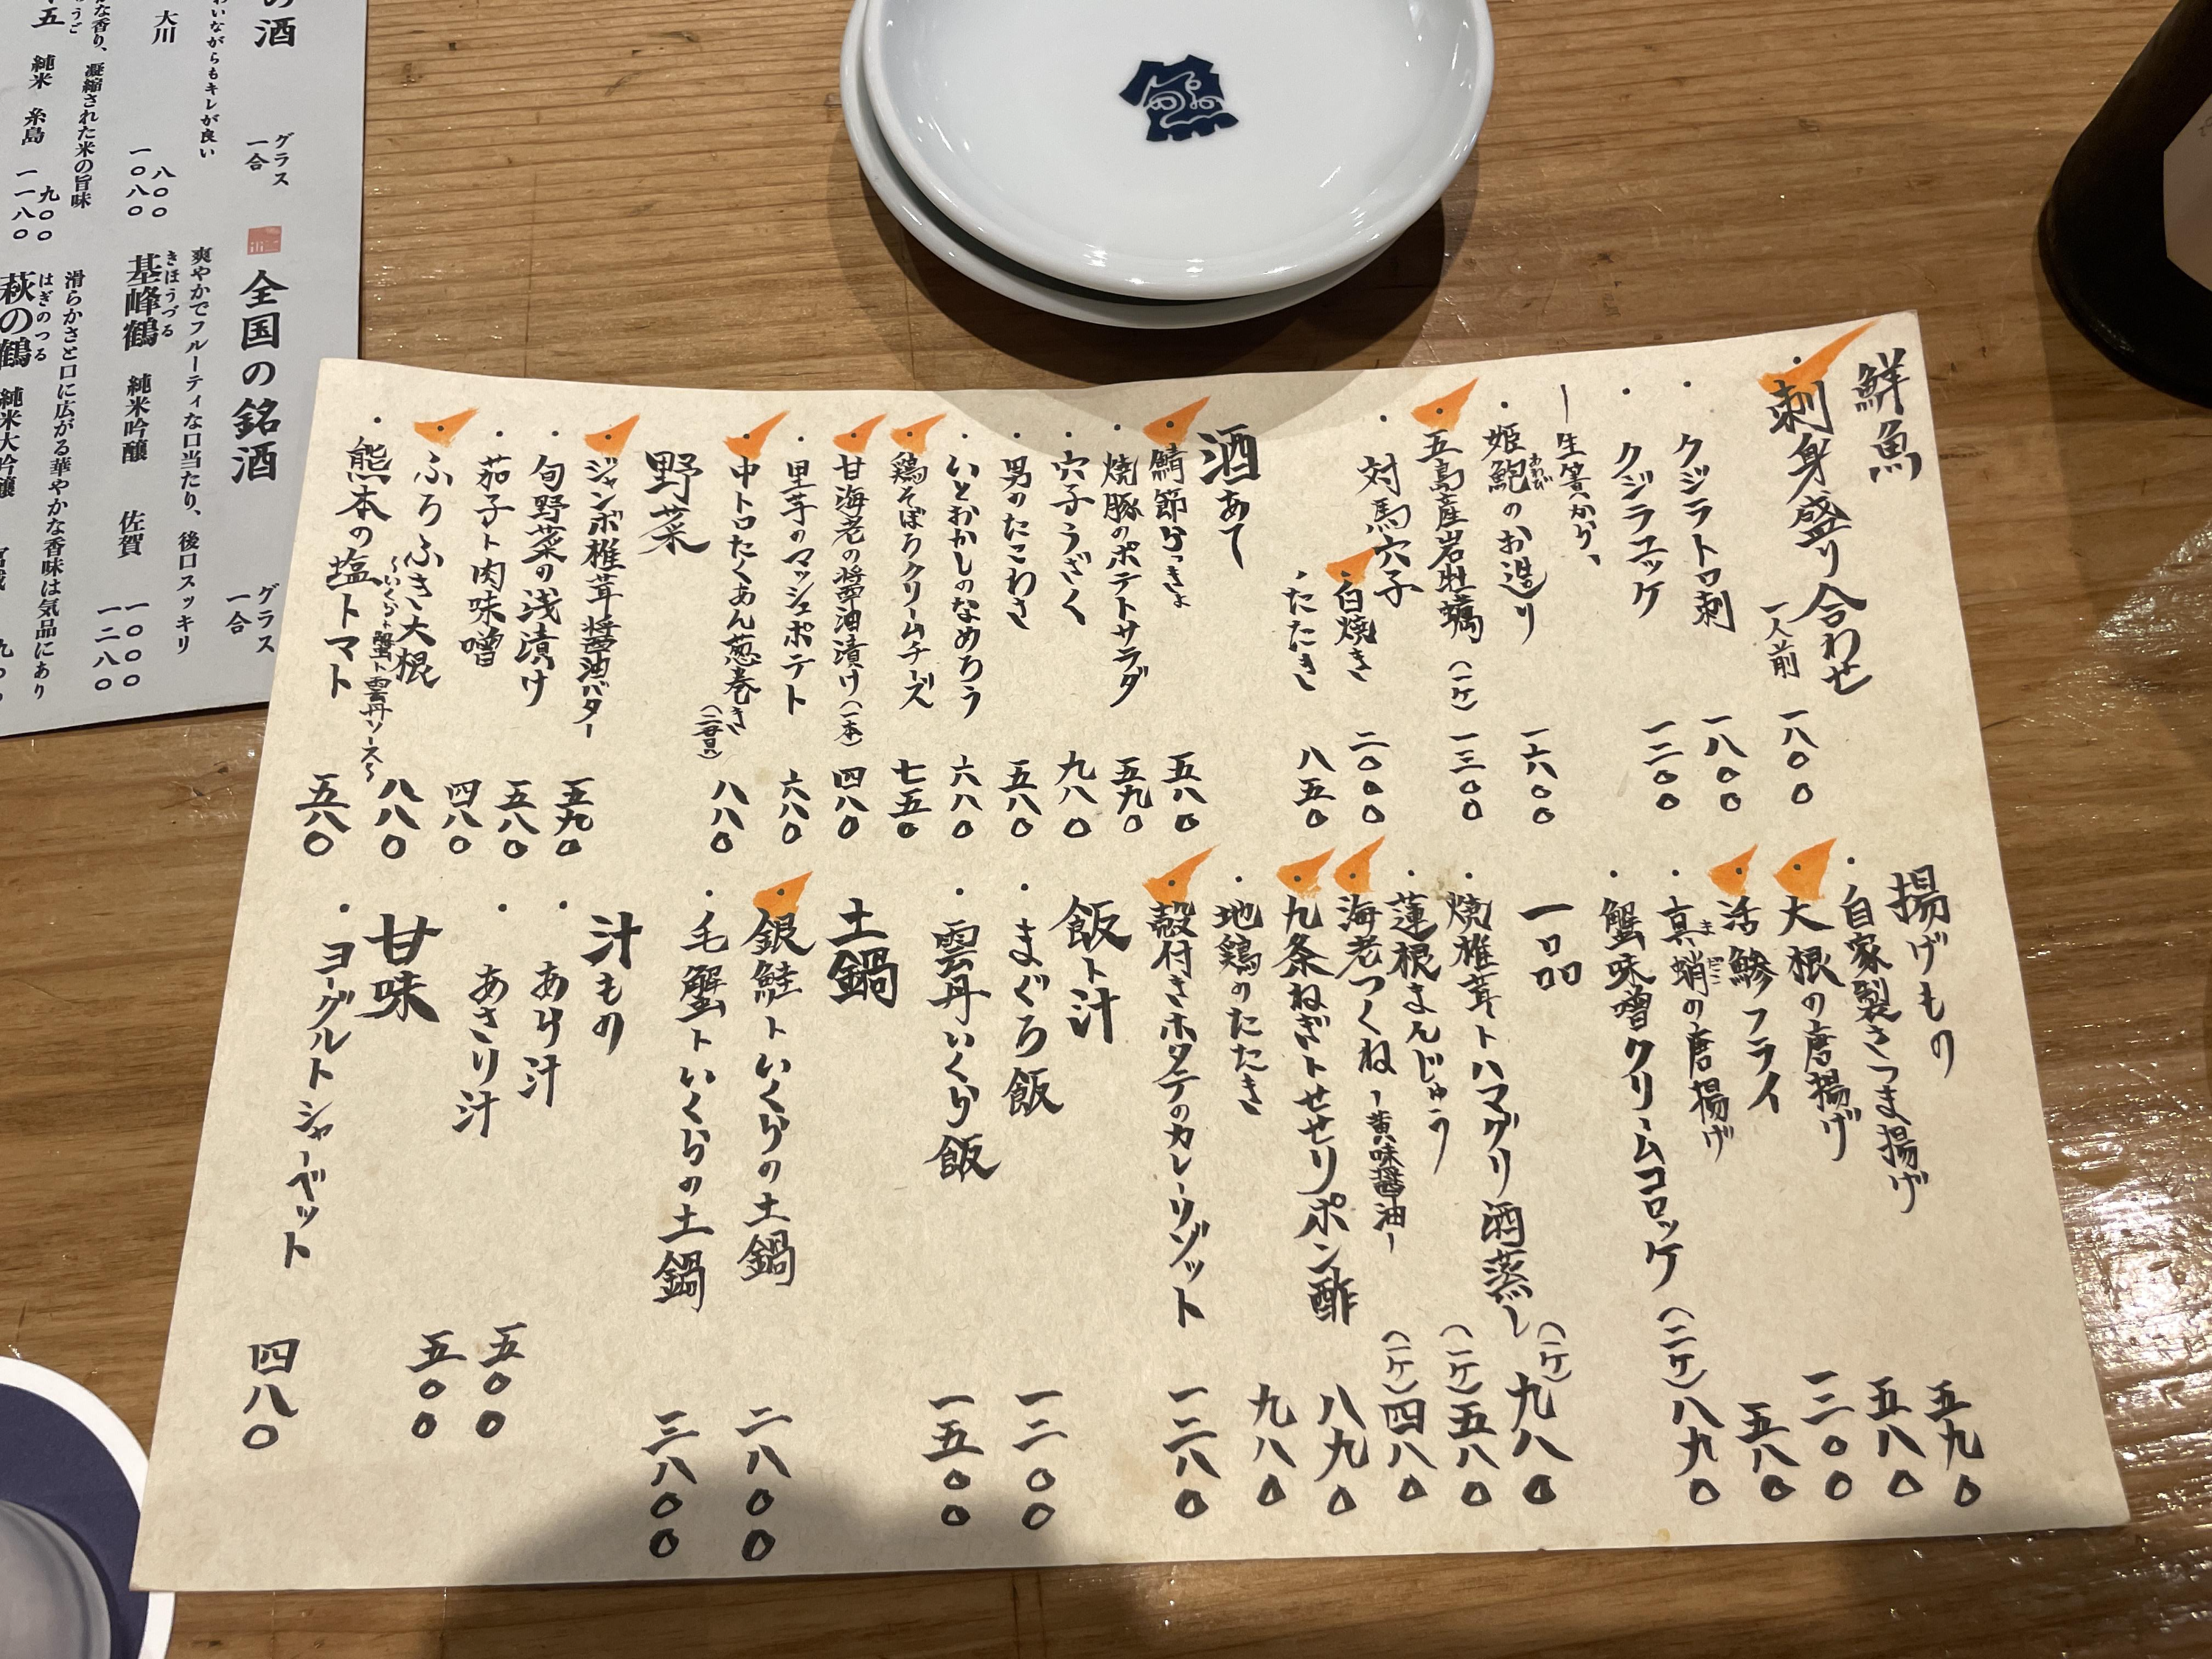 鮮魚
・刺身盛り合わせ 一人前 一八〇〇
・クジラトロ刺 一八〇〇
・クジラユッケ 一二〇〇
ー生簀より、
・姫鮑のお造り 一六〇〇
あわび
・五島産岩牡蠣(一ケ) 一三〇〇
・対馬穴子
・白焼き 二〇〇〇
・たたき 八五〇
酒あて
・鯖節らっきょ 五八〇
・焼豚のポテトサラダ 五九〇
・穴子うざく 九八〇
・男のたこわさ 五八〇
・いとおかしのなめろう 六八〇
・鶏そぼろクリームチーズ 七五〇
・甘海老の醤油漬け(一本) 四八〇
・里芋のマッシュポテト 六八〇
・中トロたくあん葱巻き 八八〇
野菜
・ジャンボ椎茸醤油バター 五九〇
・旬野菜の浅漬け 五八〇
・茄子ト肉味噌 四八〇
・ふろふき大根 八八〇
〜いくらト蟹ト雲丹ソース〜
・熊本の塩トマト 五八〇
揚げもの
・自家製さつま揚げ 五九〇
・大根の唐揚げ 五八〇
・活鯵フライ 一三〇〇
・真蛸の唐揚げ 五八〇
まだこ
・蟹味噌クリームコロッケ(二ケ) 八九〇
一品
・焼椎茸トハマグリ酒蒸し(一ケ) 九八〇
・蓮根まんじゅう(一ケ) 五八〇
・海老つくねー黄味醤油ー(一ケ) 四八〇
・九条ねぎトせせりポン酢 八九〇
・地鶏のたたき 九八〇
・殻付きホタテのカレーリゾット 一二八〇
飯ト汁
・まぐろ飯 一二〇〇
・雲丹いくら飯 一五〇〇
土鍋
・銀鮭トいくらの土鍋 二八〇〇
・毛蟹トいくらの土鍋 三八〇〇
汁もの
・あら汁 五〇〇
・あさり汁 五〇〇
甘味
・ヨーグルトシャーベット 四八〇
の酒
グラス
一合
わいながらもキレが良い
大川
八〇〇
一〇八〇
な香り、凝縮された米の旨味
五 純米 糸島
九〇〇
一一八〇
全国の銘酒
グラス
一合
爽やかでフルーティな口当たり、後口スッキリ
きほうづる
基峰鶴 純米吟醸 佐賀
一〇〇〇
一二八〇
滑らかさと口に広がる華やかな香味は気品にあり
はぎのつる
萩の鶴 純米大吟醸 宮城
旬